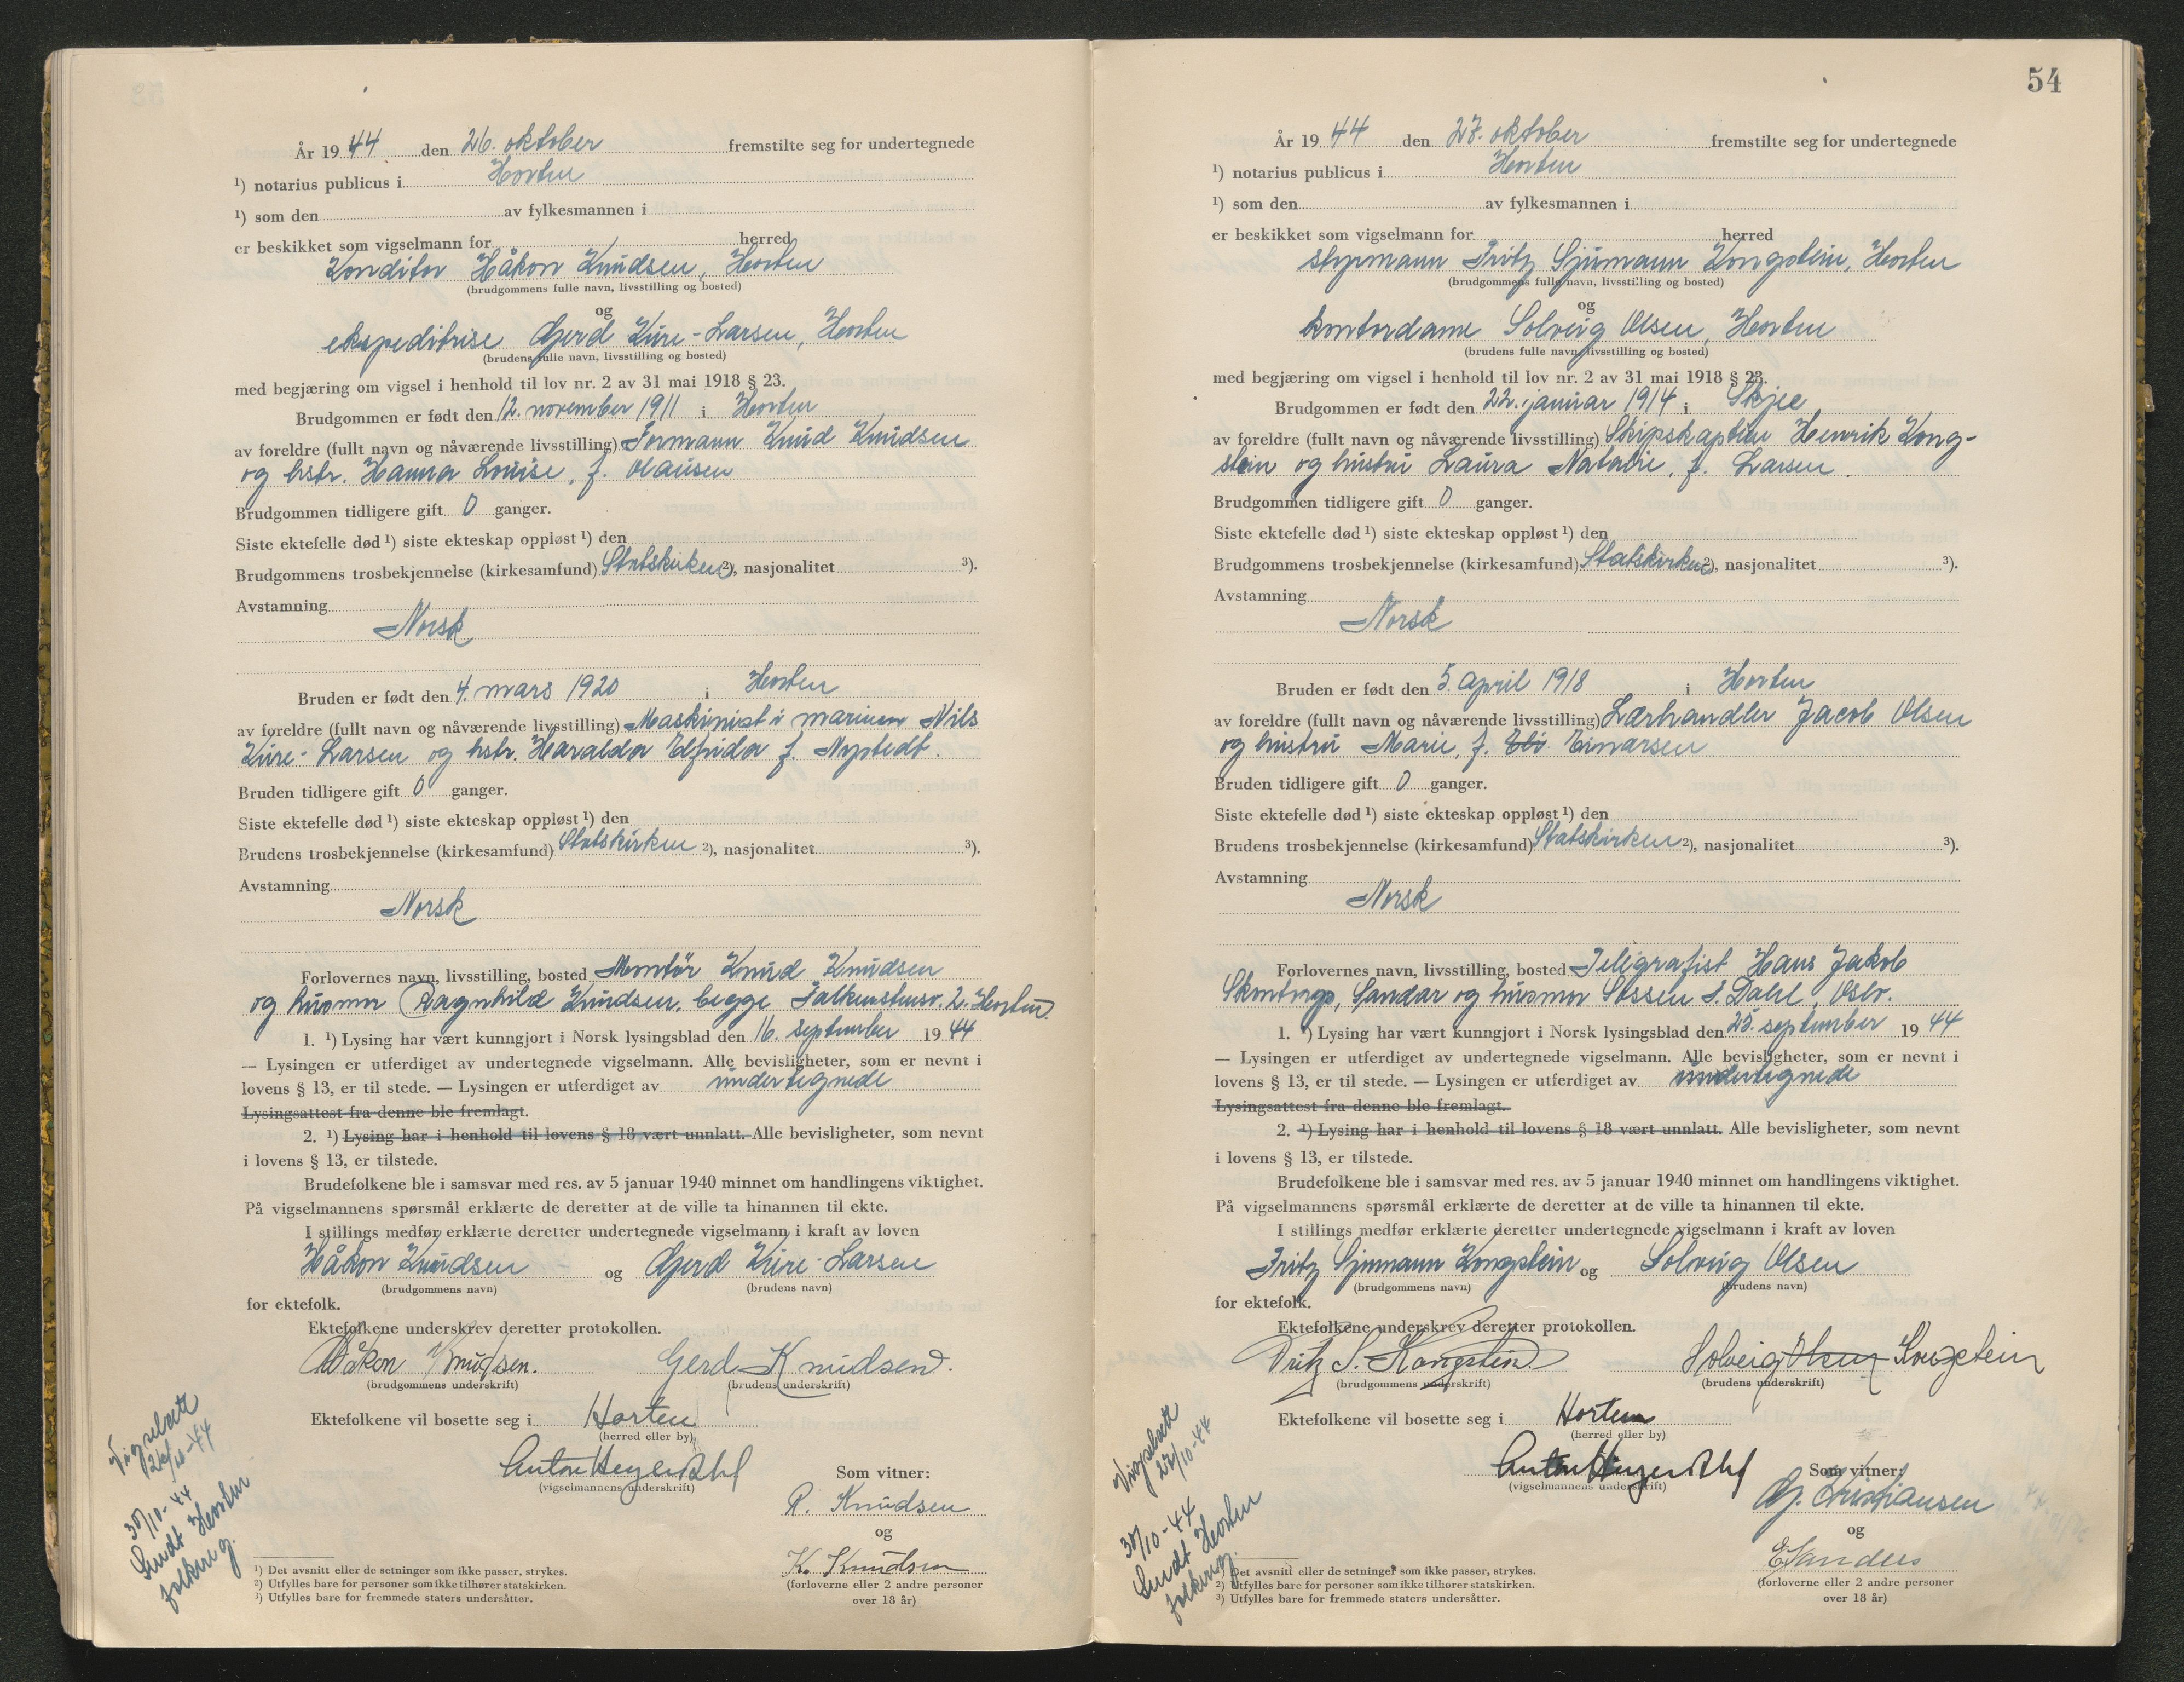 År 1944 den 26. oktober fremstilte seg for undertegnede
¹) notarius publicus i Horten
¹) som den av fylkesmannen i
er beskikket som vigselmann for herred
Konditor Håkon Knudsen, Horten
(brudgommens fulle navn, livsstilling og bosted)
og
ekspeditrise Gjerd Kure-Larsen, Horten
(brudens fulle navn, livsstilling og bosted)
med begjæring om vigsel i henhold til lov nr. 2 av 31 mai 1918 § 23.
Brudgommen er født den 12. november 1911 i Horten
av foreldre (fullt navn og nåværende livsstilling) Formann Knud Knudsen
og hstr. Hanna Louise, f. Olausen
Brudgommen tidligere gift 0 ganger.
Siste ektefelle død ¹) siste ekteskap oppløst ¹) den
Brudgommens trosbekjennelse (kirkesamfund) Statskirken ²), nasjonalitet ³).
Avstamning
Norsk
Bruden er født den 4. mars 1920 i Horten
av foreldre (fullt navn og nåværende livsstilling) Maskinist i marinen Nils
Kure-Larsen og hstr. Haralda Elfrida f. Nystedt.
Bruden tidligere gift 0 ganger.
Siste ektefelle død ¹) siste ekteskap oppløst ¹) den
Brudens trosbekjennelse (kirkesamfund) Statskirken ²), nasjonalitet ³).
Avstamning
Norsk
Forlovernes navn, livsstilling, bosted Montør Knud Knudsen
og husmor Ragnhild Knudsen, begge Falkenstensv. 2. Horten.
1. ¹) Lysing har vært kunngjort i Norsk lysingsblad den 16. september 1944
— Lysingen er utferdiget av undertegnede vigselmann. Alle bevisligheter, som er nevnt i
lovens § 13, er til stede. — Lysingen er utferdiget av undertegnede
Lysingsattest fra denne ble fremlagt.
2. ¹) Lysing har i henhold til lovens § 18 vært unnlatt. Alle bevisligheter, som nevnt
i lovens § 13, er tilstede.
Brudefolkene ble i samsvar med res. av 5 januar 1940 minnet om handlingens viktighet.
På vigselmannens spørsmål erklærte de deretter at de ville ta hinannen til ekte.
I stillings medfør erklærte deretter undertegnede vigselmann i kraft av loven
Håkon Knudsen og Gjerd Kure-Larsen
(brudgommens navn) (brudens navn)
for ektefolk.
Ektefolkene underskrev deretter protokollen.
Håkon Knudsen. Gerd Knudsen.
(brudgommens underskrift) (brudens underskrift)
Ektefolkene vil bosette seg i Horten
(herred eller by)
(vigselmannens underskrift)
Som vitner:
R. Knudsen
og
K. Knudsen
(forloverne eller 2 andre personer
over 18 år)
Vigselatt
26/10-44
30/10-44
Sendt Horten
folkereg.
¹) Det avsnitt eller de setninger som ikke passer, strykes.
²) Utfylles bare for personer som ikke tilhører statskirken.
³) Utfylles bare for fremmede staters undersåtter.
54
År 1944 den 27. oktober fremstilte seg for undertegnede
¹) notarius publicus i Horten
¹) som den av fylkesmannen i
er beskikket som vigselmann for herred
styrmann Fritz Sjumann Kongstein, Horten
(brudgommens fulle navn, livsstilling og bosted)
og
kontordame Solveig Olsen, Horten
(brudens fulle navn, livsstilling og bosted)
med begjæring om vigsel i henhold til lov nr. 2 av 31 mai 1918 § 23.
Brudgommen er født den 22. januar 1914 i Skjee
av foreldre (fullt navn og nåværende livsstilling) Skipskaptein Henrik Kong-
stein og hustru Laura Natalie, f. Larsen.
Brudgommen tidligere gift 0 ganger.
Siste ektefelle død ¹) siste ekteskap oppløst ¹) den
Brudgommens trosbekjennelse (kirkesamfund) Statskirken ²), nasjonalitet ³).
Avstamning
Norsk
Bruden er født den 5. april 1918 i Horten
av foreldre (fullt navn og nåværende livsstilling) Lærhandler Jacob Olsen
og hustru Marie, f. Einarsen
Bruden tidligere gift 0 ganger.
Siste ektefelle død ¹) siste ekteskap oppløst ¹) den
Brudens trosbekjennelse (kirkesamfund) Statskirken ²), nasjonalitet ³).
Avstamning
Norsk
Forlovernes navn, livsstilling, bosted Telegrafist Hans Jakob
Sandar og husmor Dahl, Oslo.
1. ¹) Lysing har vært kunngjort i Norsk lysingsblad den 25. september 1944
— Lysingen er utferdiget av undertegnede vigselmann. Alle bevisligheter, som er nevnt i
lovens § 13, er til stede. — Lysingen er utferdiget av undertegnede
Lysingsattest fra denne ble fremlagt.
2. ¹) Lysing har i henhold til lovens § 18 vært unnlatt. Alle bevisligheter, som nevnt
i lovens § 13, er tilstede.
Brudefolkene ble i samsvar med res. av 5 januar 1940 minnet om handlingens viktighet.
På vigselmannens spørsmål erklærte de deretter at de ville ta hinannen til ekte.
I stillings medfør erklærte deretter undertegnede vigselmann i kraft av loven
Fritz Sjumann Kongstein og Solveig Olsen
(brudgommens navn) (brudens navn)
for ektefolk.
Ektefolkene underskrev deretter protokollen.
Fritz S. Kongstein Solveig Olsen Kongstein
(brudgommens underskrift) (brudens underskrift)
Ektefolkene vil bosette seg i Horten
(herred eller by)
(vigselmannens underskrift)
Som vitner:
Kristiansen
og
E Sanders
(forloverne eller 2 andre personer
over 18 år)
Vigselatt
27/10-44
30/10-44
Sendt Horten
folkereg.
¹) Det avsnitt eller de setninger som ikke passer, strykes.
²) Utfylles bare for personer som ikke tilhører statskirken.
³) Utfylles bare for fremmede staters undersåtter.